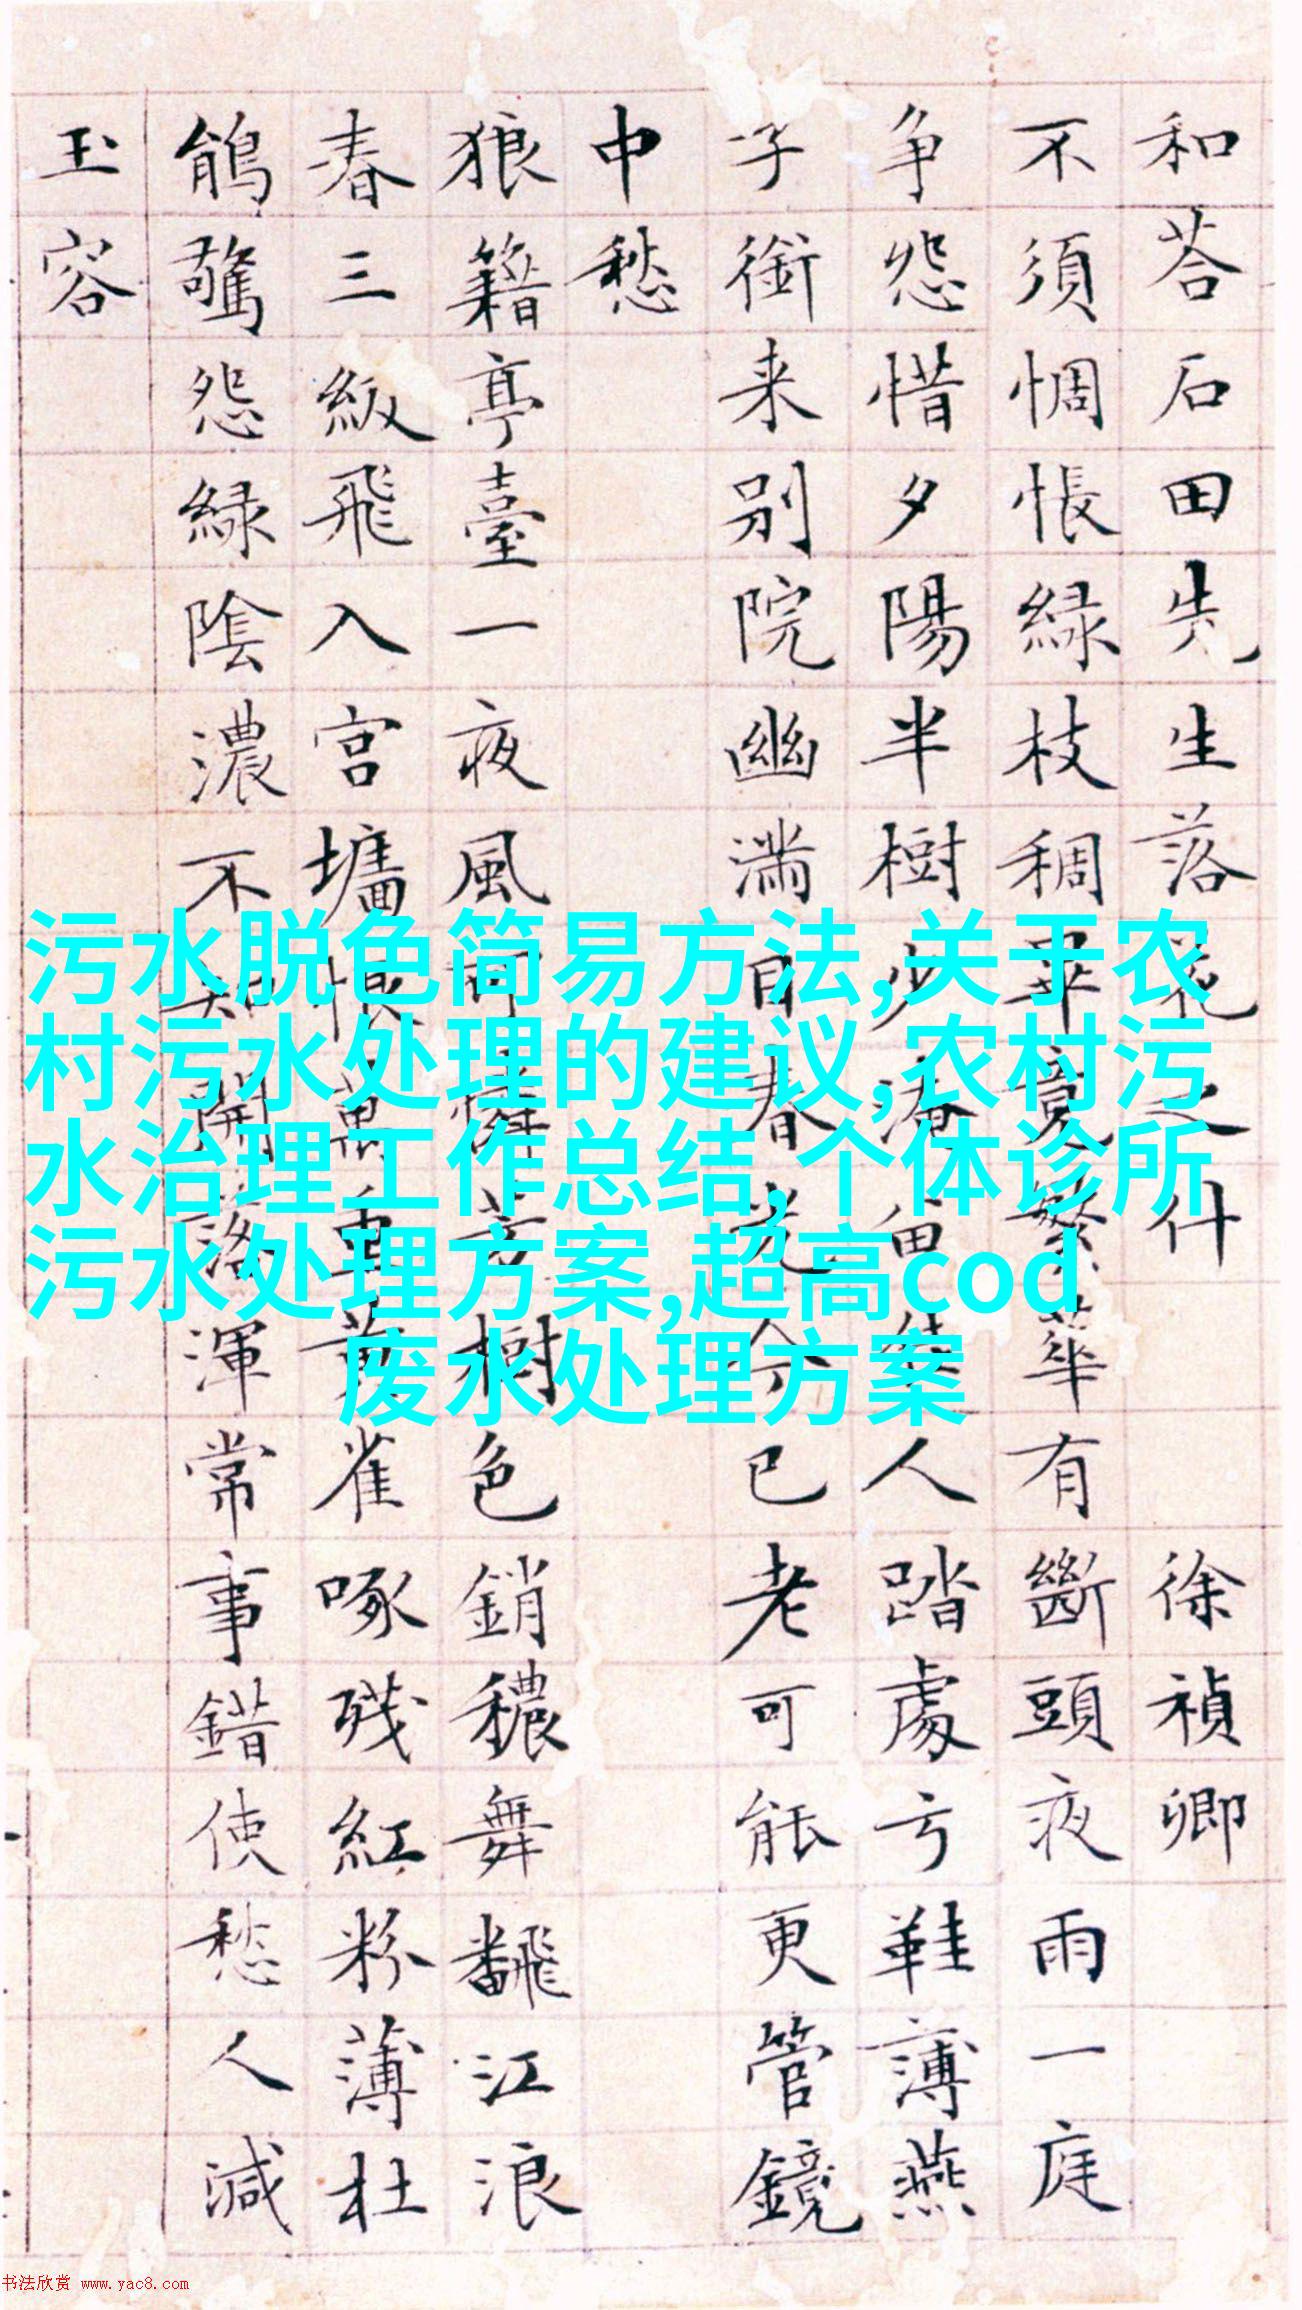 和荅石田先生落花之什 徐禎卿
不須惆悵綠枝稠畢竟繁華有斷頭夜雨一庭
争怨惜夕陽半樹少淹留人踏處亏鞋薄燕
子銜来別院幽滿目春光今已老可能更管鏡
中愁
狼籍亭臺一夜風可憐芳樹色銷穠舞飜江浪
春三級飛入宮墻恨萬重黃雀啄殘紅粉薄杜
鵑驚怨綠陰濃不知開落渾常事錯使愁人減
玉容
污水脱色简易方法,关于农
村污水处理的建议,农村污
水治理工作总结,个体诊所
污水处理方案,超高cod
废水处理方案
书法欣赏 www.yac8.com